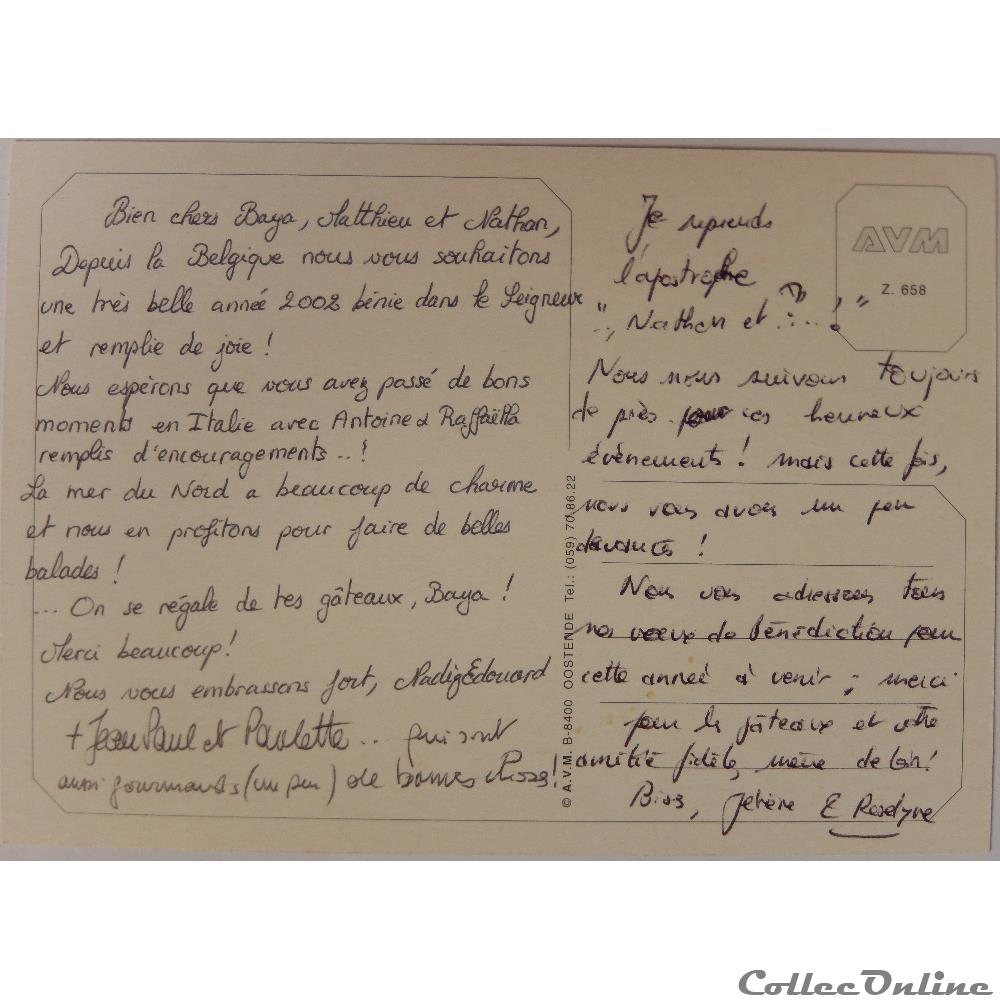 Bien chers Baya, Matthieu et Nathan,
Depuis la Belgique nous vous souhaitons
une très belle année 2002 bénie dans le Seigneur
et remplie de joie !
Nous espérons que vous avez passé de bons
moments en Italie avec Antoine & Raffaëlla
remplis d'encouragements ..!
La mer du Nord a beaucoup de charme
et nous en profitons pour faire de belles
balades !
... On se régale de tes gâteaux, Baya !
Merci beaucoup!
Nous vous embrassons fort, Nadig Edouard
+ Jean Paul et Paulette .. qui sont
aussi gourmands (un peu) de bonnes choses!
© A.V.M. B-8400 OOSTENDE Tel.: (059) 70.86.22
AVM
Z. 658
Je reprends
l'apostrophe
"., Nathan et ?...! "
Nous nous suivons toujours
de près pour ces heureux
évènements ! mais cette fois,
nous vous avons un peu
devancés !
Nous vous adressons tous
nos voeux de bénédiction pour
cette année à venir ; merci
pour les gâteaux et votre
amitié fidèle, même de loin!
Bises, & Roselyne
CollecOnline